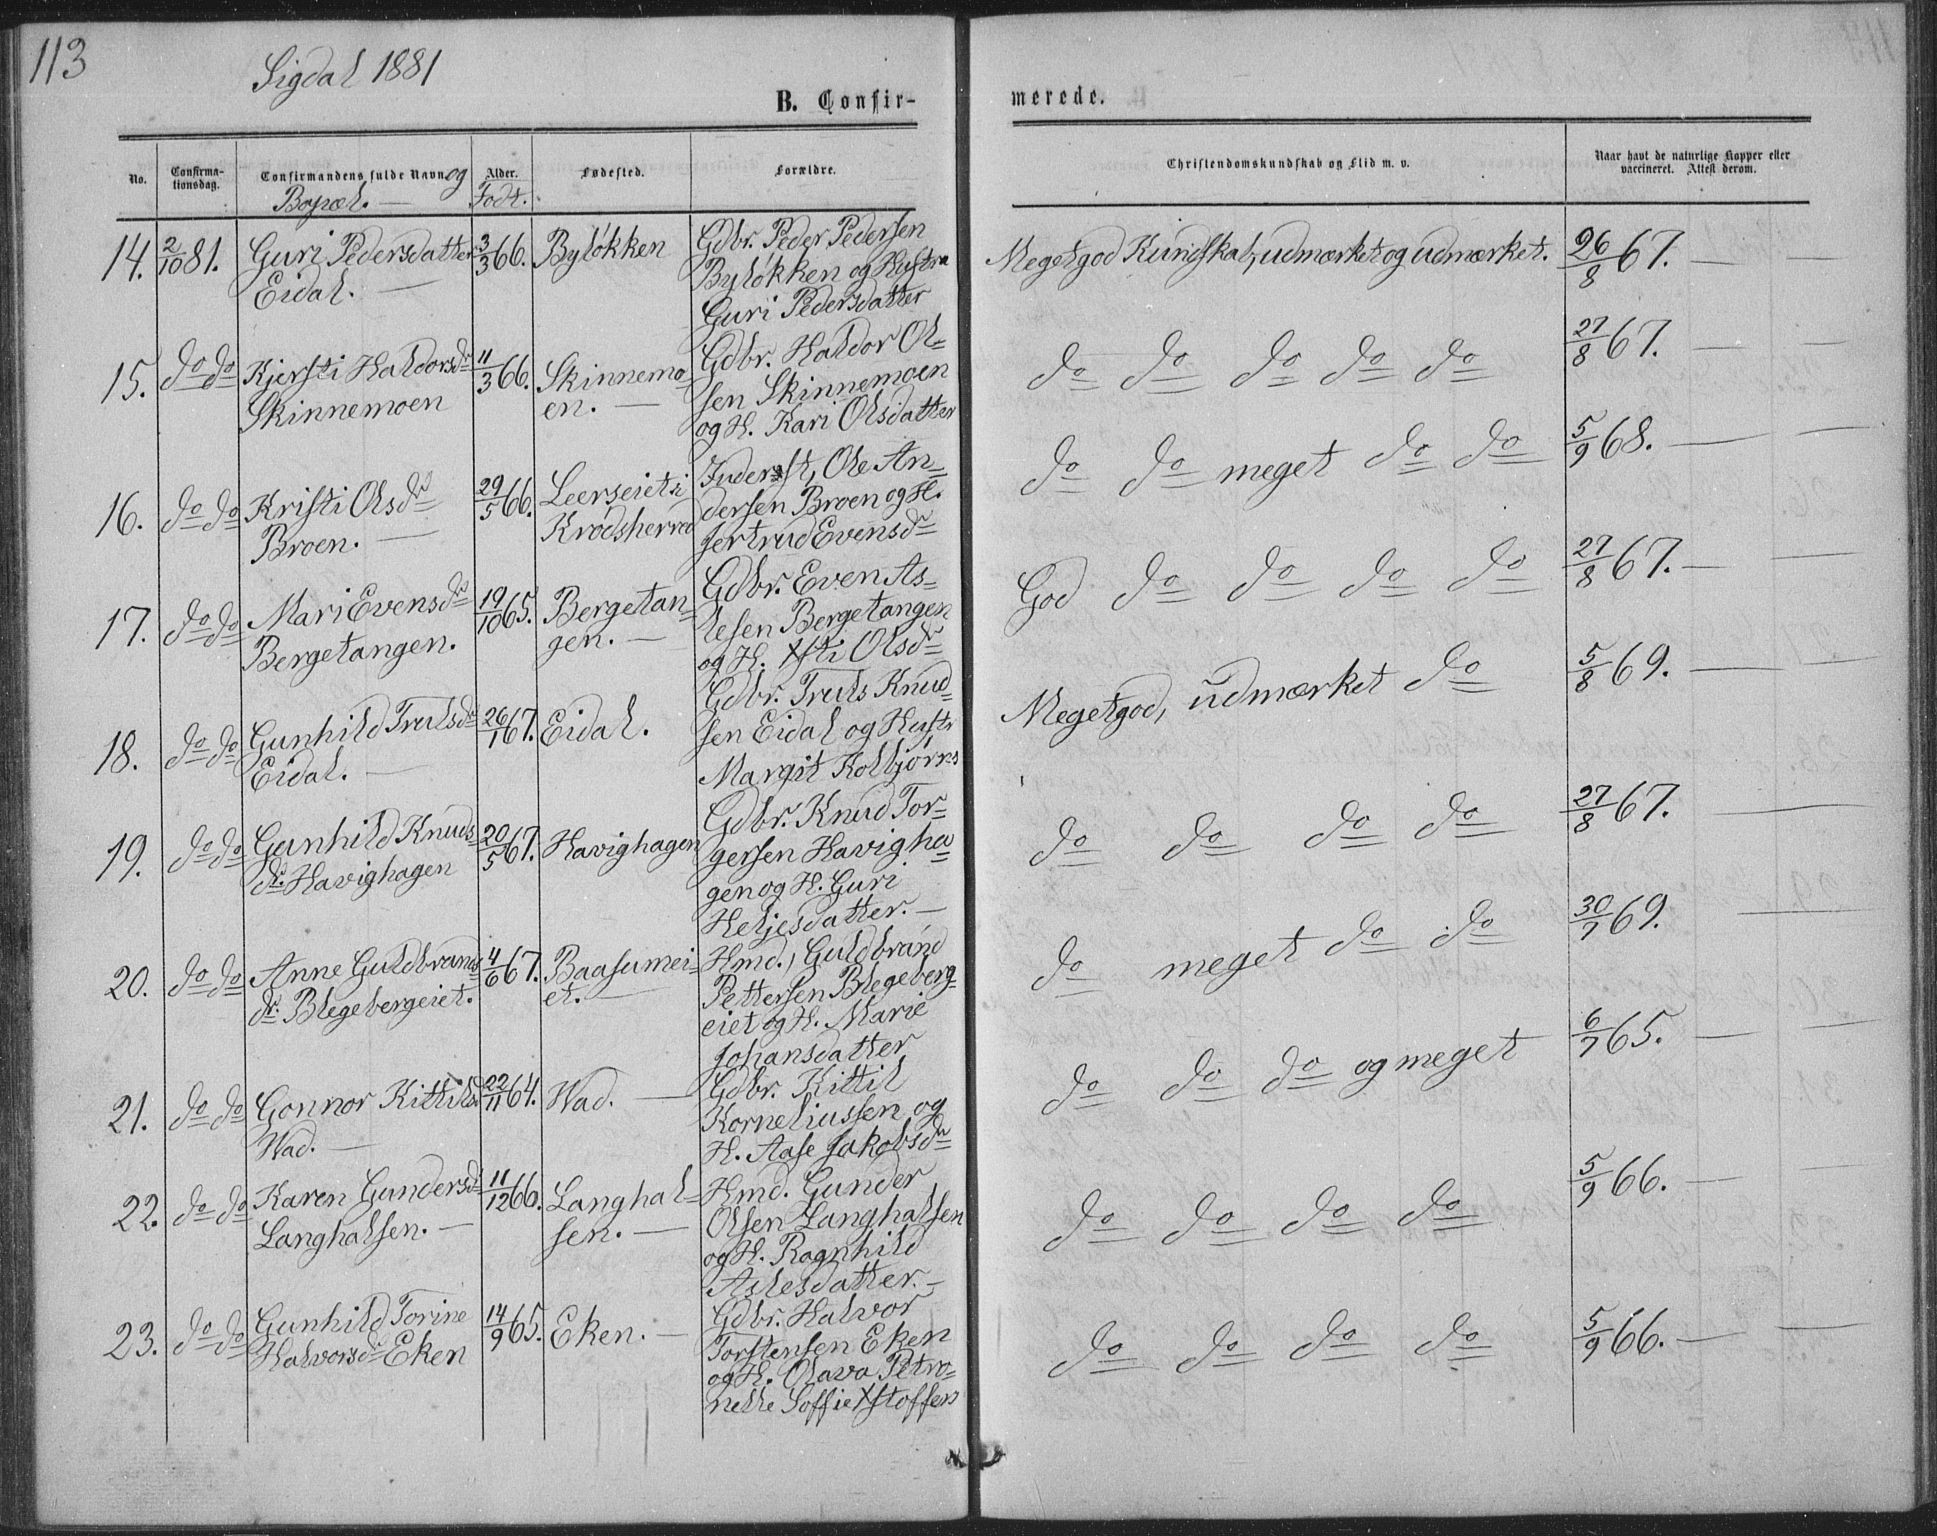 113
Sigdal 1881
B. Confir-
merede.
No.
Confirma-
tionsdag.
Confirmandens fulde Navn og
Bopæl. —
Alder.
Födt.
Fødested.
Forældre.
Christendomskundskab og Flid m. v.
Naar havt de naturlige Kopper eller
vaccineret. Attest derom.
14. 2/10 81. Guri Pedersdatter 3/3 66. Byløkken Gdbr. Peder Pedersen
Eidal. — Byløkken og Hustru
Guri Pedersdatter
Megetgod Kundskab, udmærket og udmærket. 26/8 67. — —
15. do do Kjersti Haldorsdr 11/3 66. Skinnemo Gdbr. Haldor Ol-
Skinnemoen en. — sen Skinnemoen
og H. Kari Olsdatter
do do do do do 27/8 67. — —
16. do do Kristi Olsdr 29/5 66. Leerseiet i Inderst, Ole An-
Broen. — Krødsherred dersen Broen og H.
Jertrud Evensdr
do do meget do do 5/9 68. — —
17. do do Mari Evensdr 19/10 65. Bergetan- Gdbr. Even As-
Bergetangen. gen. — lesen Bergetangen
og H. Xsti Olsdr
God do do do do 27/8 67. — —
18. do do Gunhild Trulsdr 26/1 67. Eidal. Gdbr. Truls Knud-
Eidal. — sen Eidal og Hustr
Margit Kolbjørns
Megetgod, udmærket do 5/8 69. — —
19. do do Gunhild Knuds- 20/5 67. Havighagen Gdbr. Knud Tor-
dr. Havighagen gersen Havigha-
gen og H. Guri
Heljesdatter. —
do do do do 27/8 67. — —
20. do do Anne Guldbrands 4/6 67. Baasumei- Hmd., Guldbrand
dr. Blegebergeiet. et. — Pettersen Blegeberg-
eiet og H. Marie
Johansdatter
do meget do do 30/7 69. —
21. do do Gonnor Kittilsd 22/11 64. Wad. — Gdbr. Kittil
Wad. — Korneliussen og
H. Aase Jakobsdr
do do do og meget 6/7 65. — —
22. do do Karen Gundersd 11/12 66. Langhal- Hmd. Gunder
Langhalsen. — sen. — Olsen Langhalsen
og H. Ragnhild
Aslesdatter. —
do do do do 5/9 66. — —
23. do do Gunhild Torine 14/9 65. Eken. — Gdbr. Halvor
Halvorsdr Eken Torstensen Eken
og H. Olava Petro-
nelle Soffie Xstoffers
do do do do 5/9 66. — —